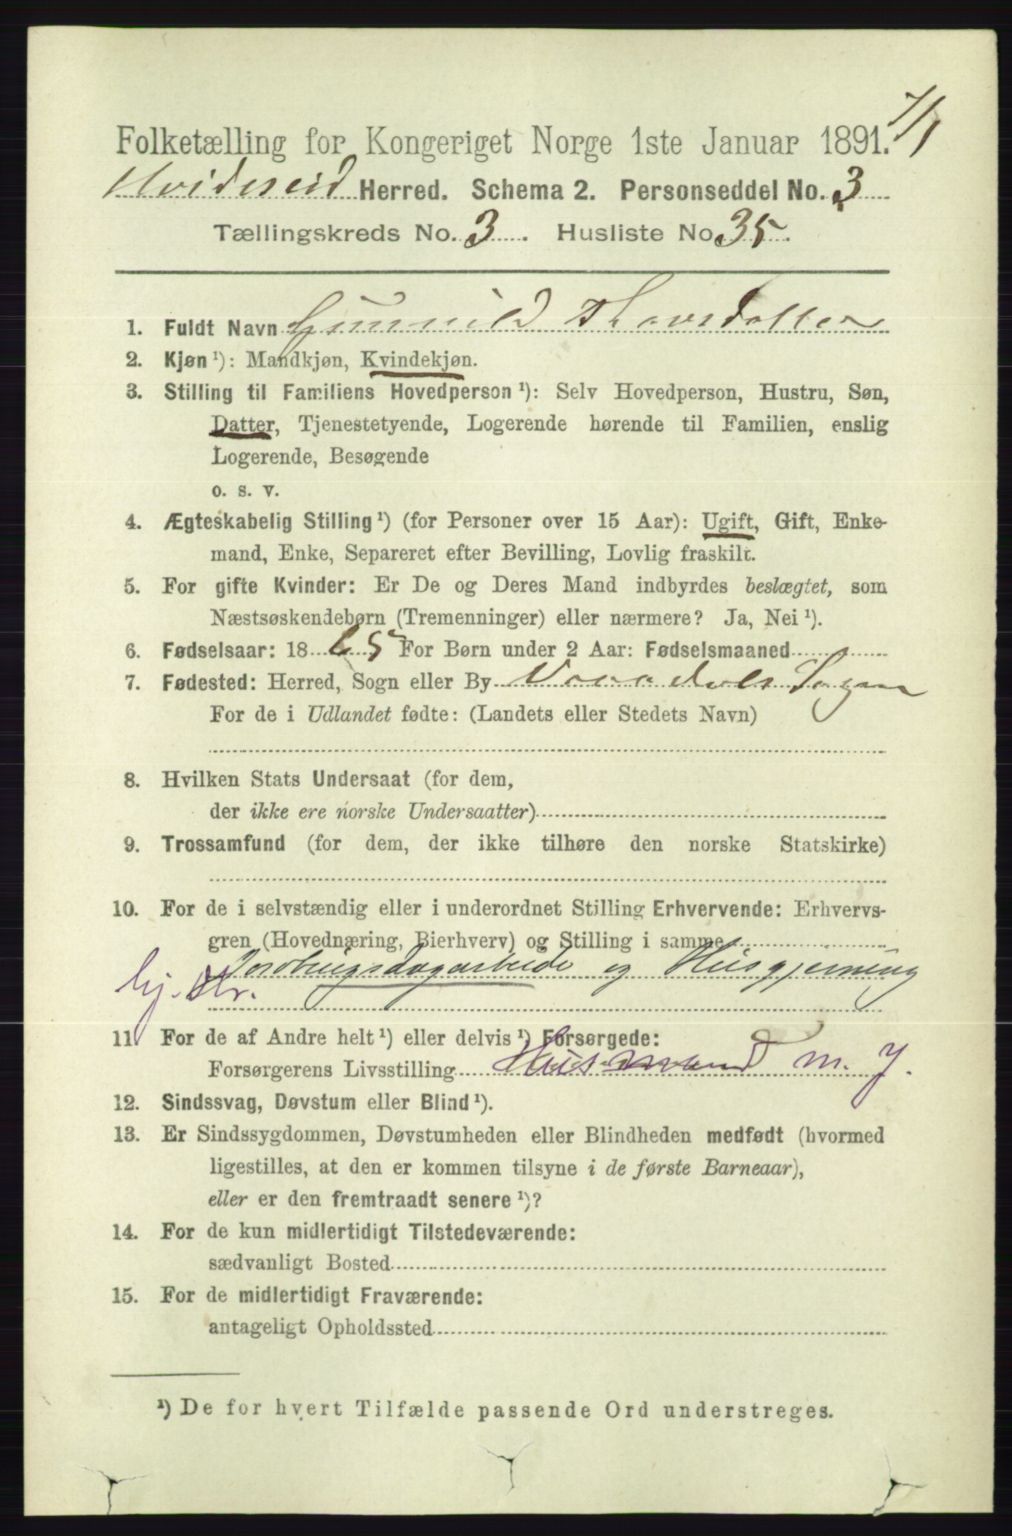 7/1
Folketælling for Kongeriget Norge 1ste Januar 1891.
Hvideseid Herred. Schema 2. Personseddel No. 3
Tællingskreds No. 3. Husliste No. 35.
1. Fuldt Navn Gunnild Thorsdatter
2. Kjøn ¹): Mandkjøn, Kvindekjøn.
3. Stilling til Familiens Hovedperson ¹): Selv Hovedperson, Hustru, Søn,
Datter, Tjenestetyende, Logerende hørende til Familien, enslig
Logerende, Besøgende
o. s. v.
4. Ægteskabelig Stilling ¹) (for Personer over 15 Aar): Ugift, Gift, Enke-
mand, Enke, Separeret efter Bevilling, Lovlig fraskilt.
5. For gifte Kvinder: Er De og Deres Mand indbyrdes beslægtet, som
Næstsøskendebørn (Tremenninger) eller nærmere? Ja, Nei ¹).
6. Fødselsaar: 1865 For Børn under 2 Aar: Fødselsmaaned
7. Fødested: Herred, Sogn eller By
For de i Udlandet fødte: (Landets eller Stedets Navn)
8. Hvilken Stats Undersaat (for dem,
der ikke ere norske Undersaatter)
9. Trossamfund (for dem, der ikke tilhøre den norske Statskirke)
10. For de i selvstændig eller i underordnet Stilling Erhvervende: Erhvervs-
gren (Hovednæring, Bierhverv) og Stilling i samme
Jordbrugsdagarbeide og Husgjerning
hj.
11. For de af Andre helt ¹) eller delvis ¹) Forsørgede:
Forsørgerens Livsstilling Husmand m. J.
12. Sindssvag, Døvstum eller Blind ¹).
13. Er Sindssygdommen, Døvstumheden eller Blindheden medfødt (hvormed
ligestilles, at den er kommen tilsyne i de første Barneaar),
eller er den fremtraadt senere ¹)?
14. For de kun midlertidigt Tilstedeværende:
sædvanligt Bosted
15. For de midlertidigt Fraværende:
antageligt Opholdssted
¹) De for hvert Tilfælde passende Ord understreges.